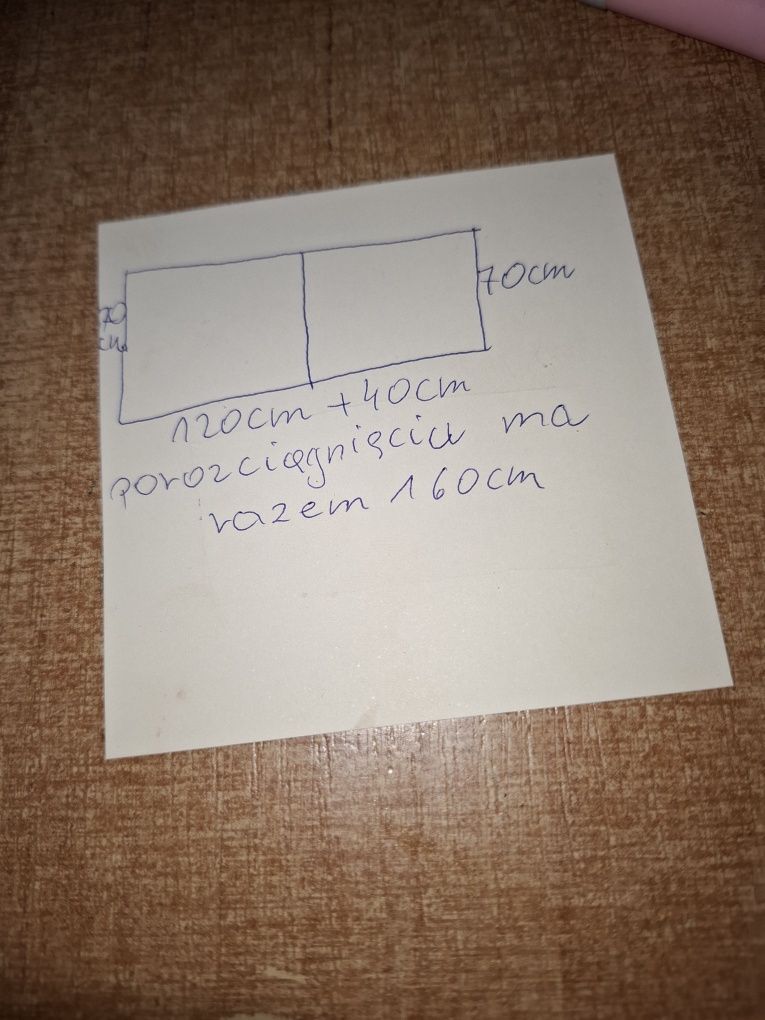 70
cm
70cm
120cm + 40cm
porozciągnięciu ma
razem 160cm